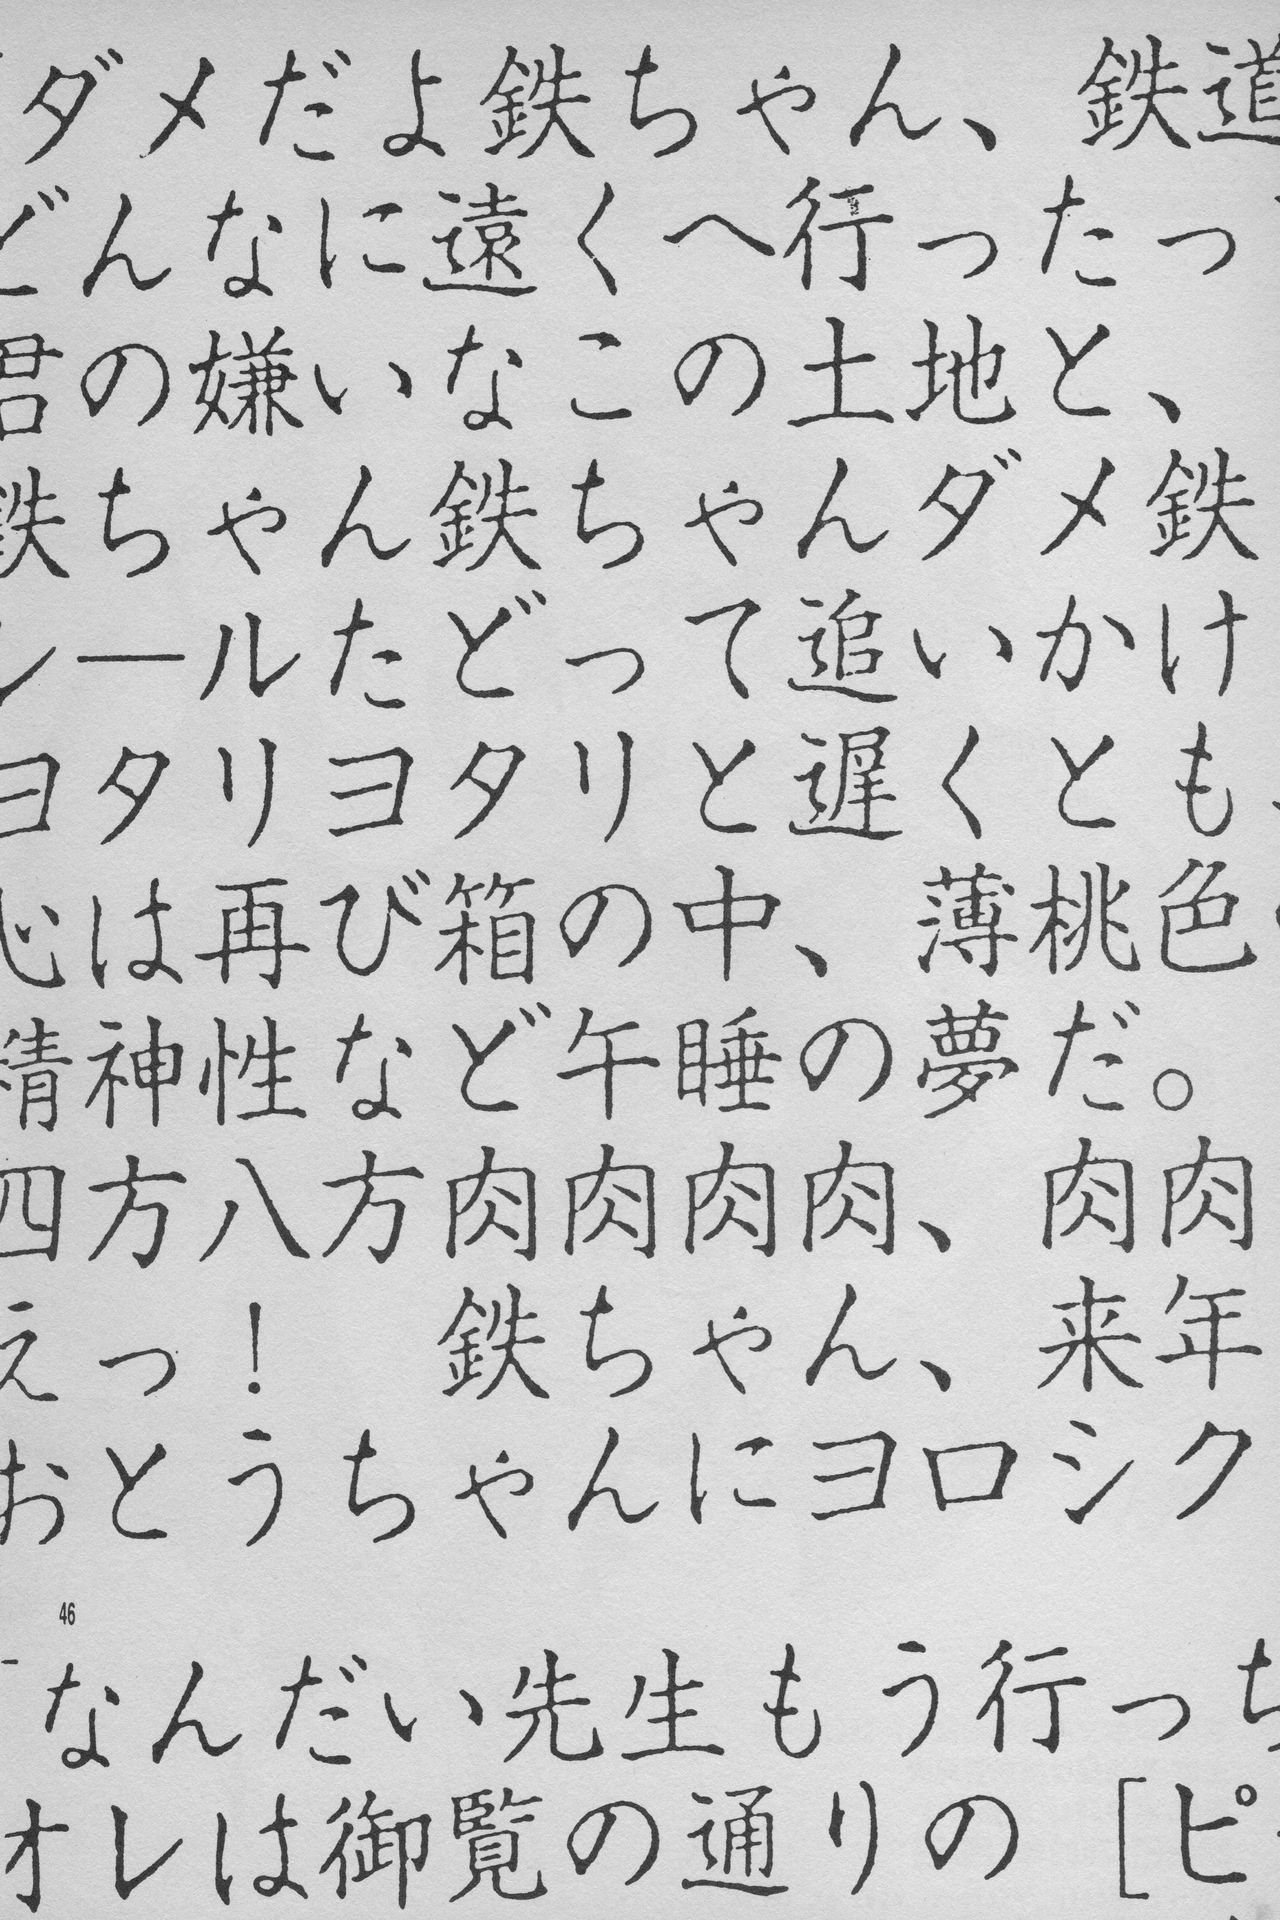 ダメだよ鉄ちゃん、鉄道
どんなに遠くへ行ったっ
君の嫌いなこの土地と、
鉄ちゃん鉄ちゃんダメ鉄
レールたどって追いかけ
ヨタリヨタリと遅くとも
心は再び箱の中、薄桃色
精神性など午睡の夢だ。
四方八方肉肉肉肉、肉肉
えっ！　鉄ちゃん、来年
おとうちゃんにヨロシク
46
なんだい先生もう行っち
オレは御覧の通りの［ピ